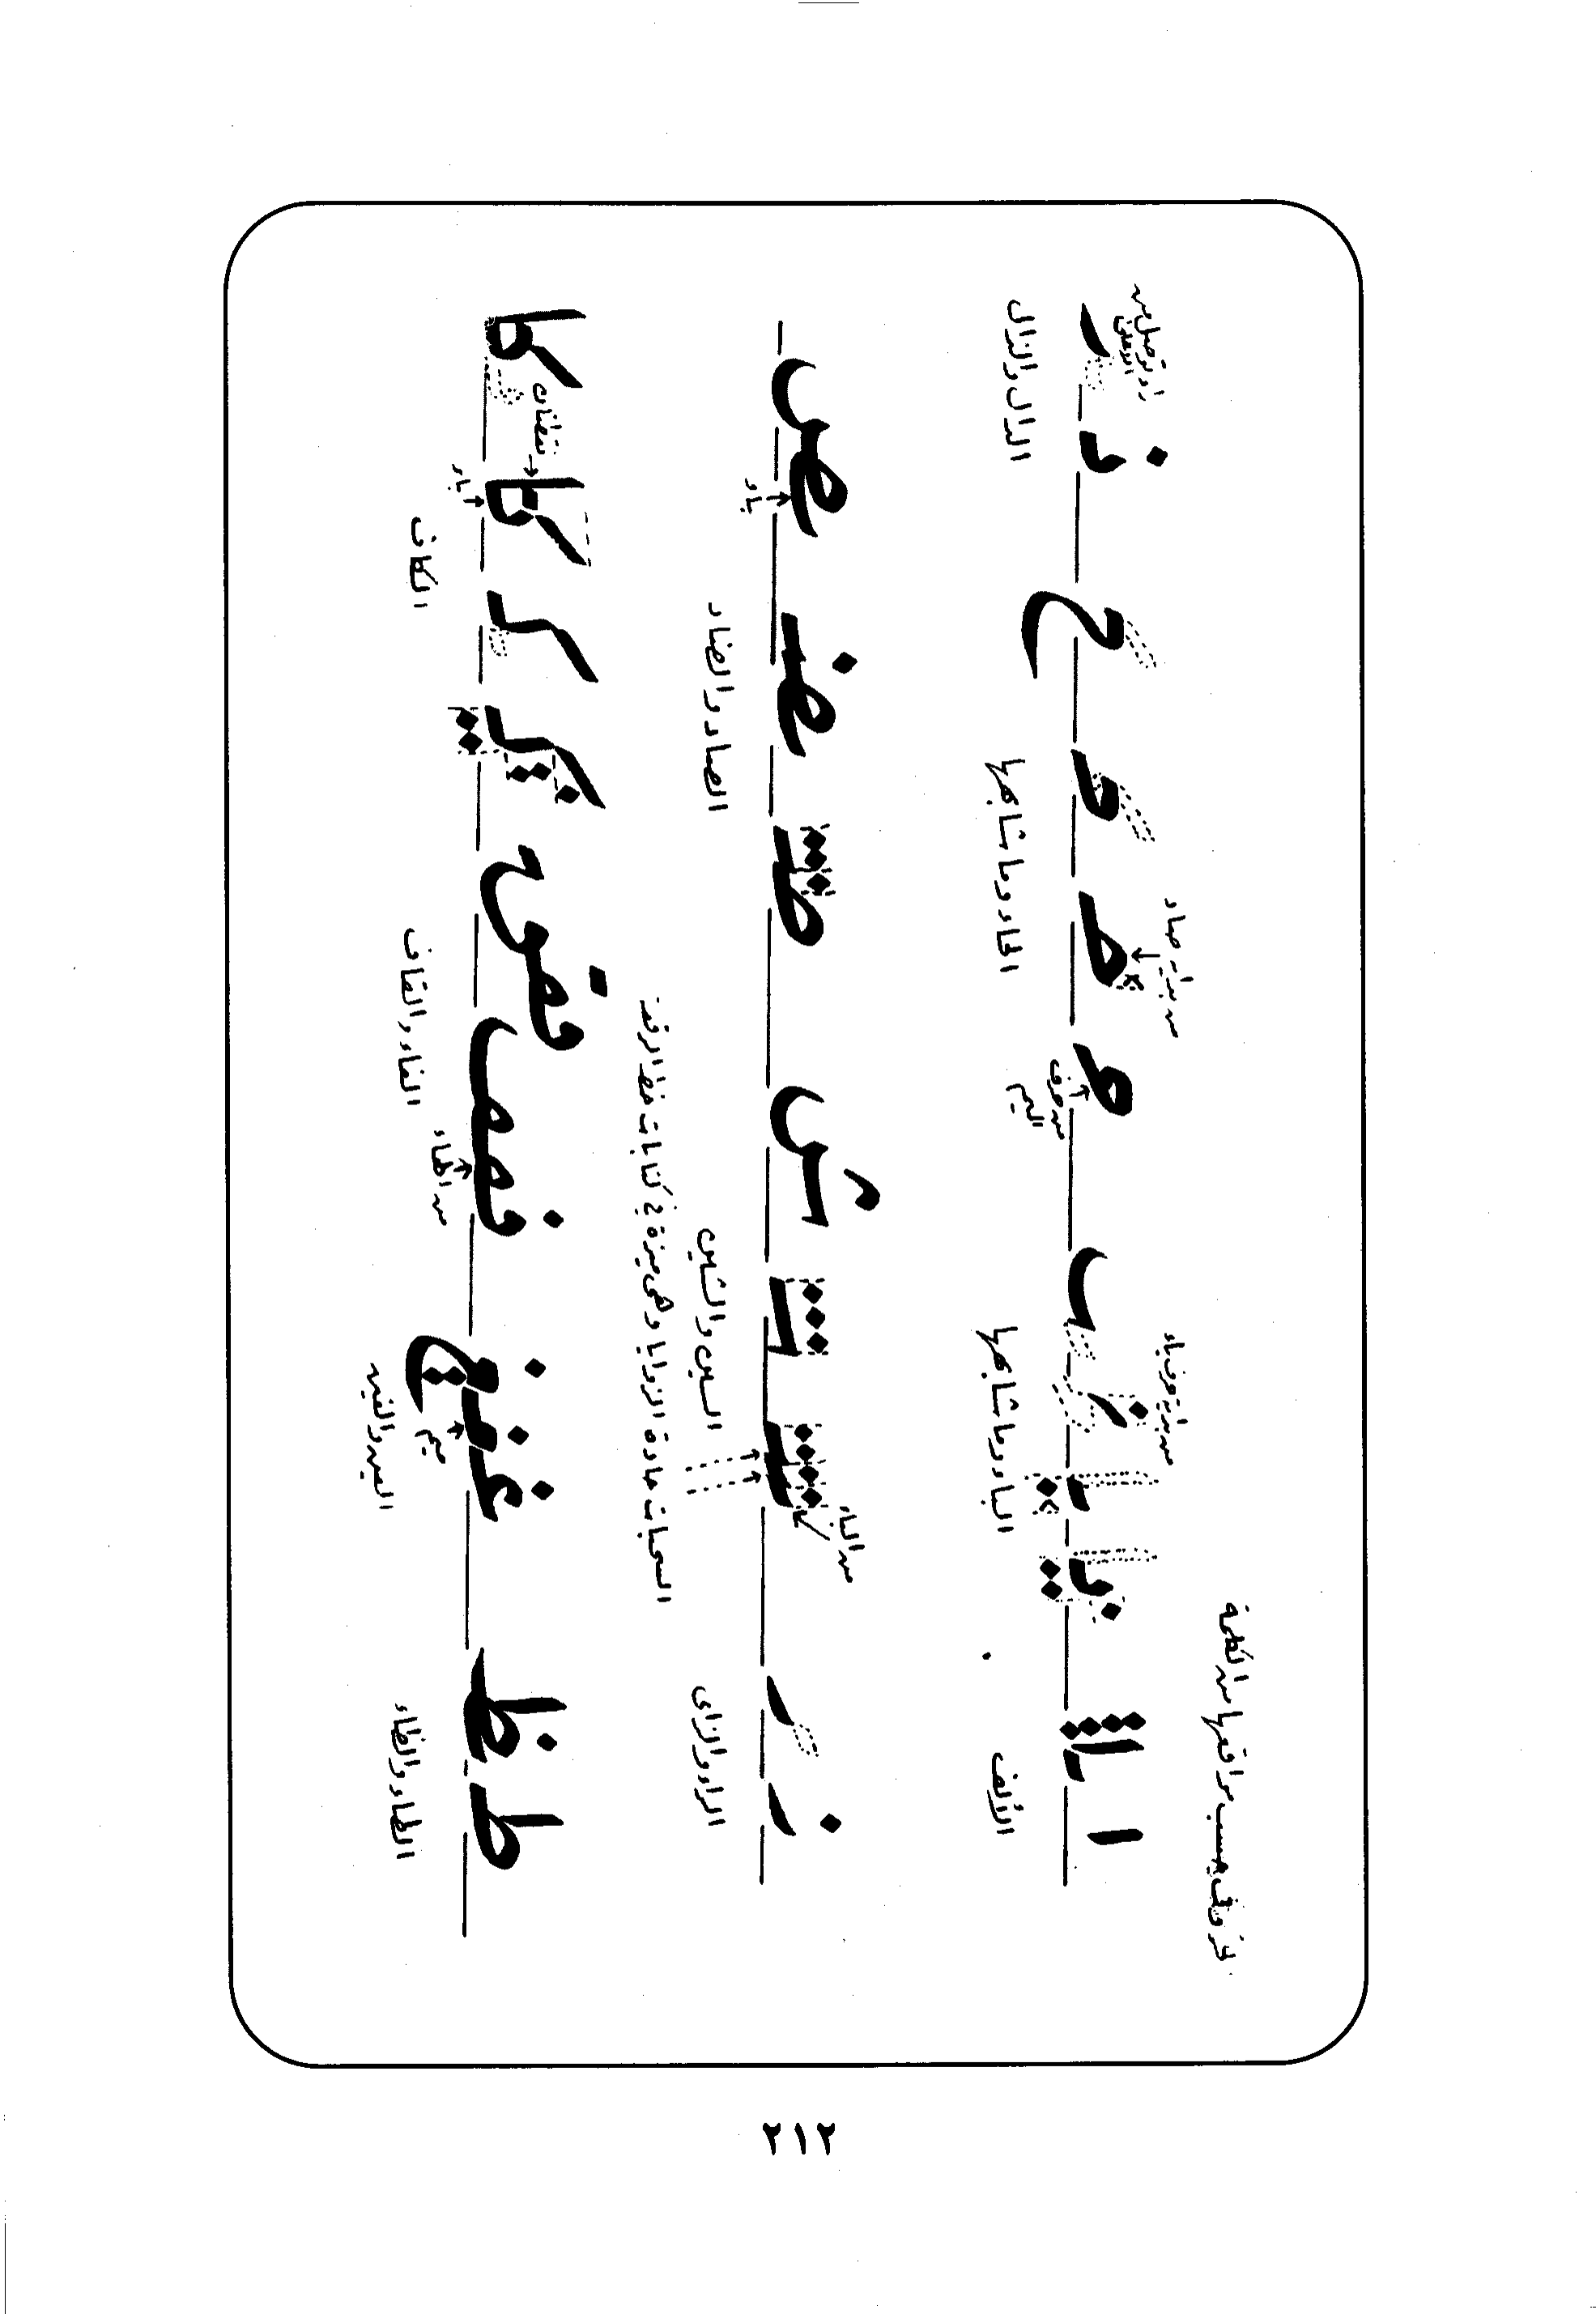 الحروف حسب مواقعها من الكلمة
من بداية حرف باء
من بداية صاد
راء توصل من الأعلى
من حرف الميم
الألف
الباء وما شابهها
الحاء وما شابهها
الدال والذال
من الباء
باء
الراء والزاى
السين والشين
الصاد والضاد
السحبات حادة الزوايا وهى ميزة في كتابات خط الرقعة
نقطتان
باء
ميم
من الهاء
الطاء والظاء
العين والغين
الفاء والقاف
الكاف
٢١٢